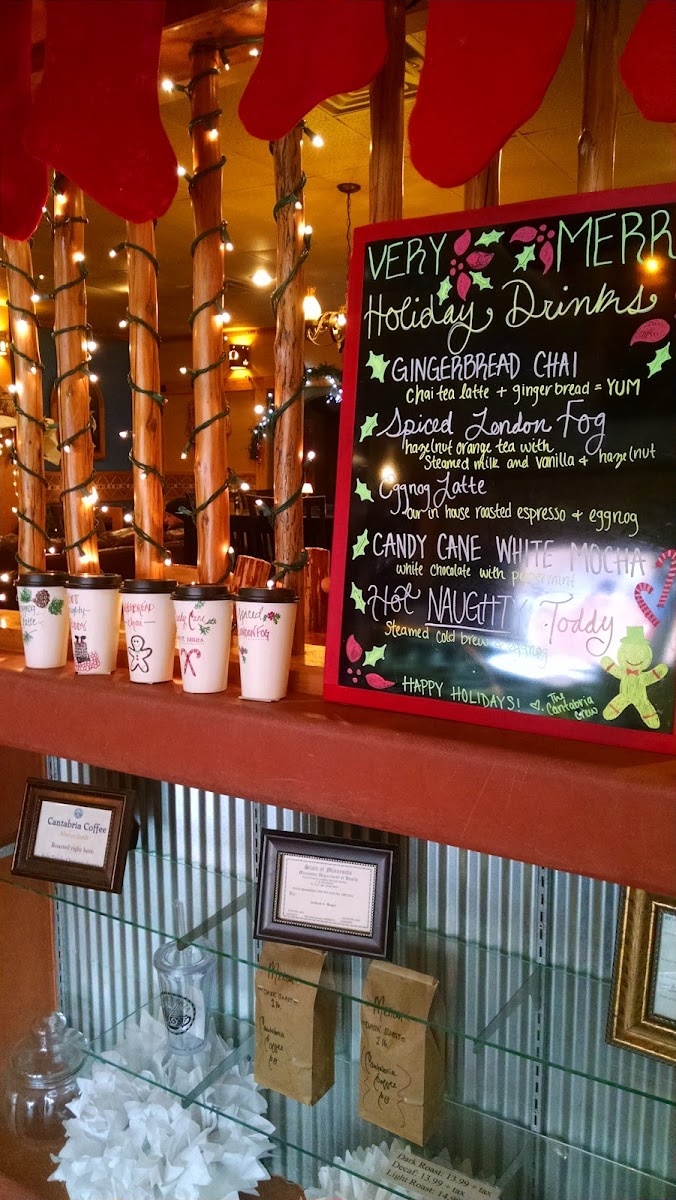 VERY MERR
Holiday Drinks
GINGERBREAD CHAI
Chai tea latte + gingerbread = YUM
Spiced London Fog
hazelnut orange tea with
steamed milk and vanilla + hazelnut
Eggnog Latte
our in house roasted espresso + eggnog
CANDY CANE WHITE MOCHA
white chocolate with peppermint
Hot NAUGHTY Toddy
Steamed cold brew + eggnog
HAPPY HOLIDAYS!
The
Cantabria
Crew
Latte
Chai
Candy Cane
Spiced
LONDON FOG
Cantabria Coffee
Roasted right here.
State of Minnesota
Minnesota Department of Health
DARK ROAST
1 lb.
Cantabria
Coffee
DARK ROAST
1 lb.
Cantabria
Coffee
Dark Roast: 13.99 + tax
Decaf: 13.99 + tax
Light Roast: 14.